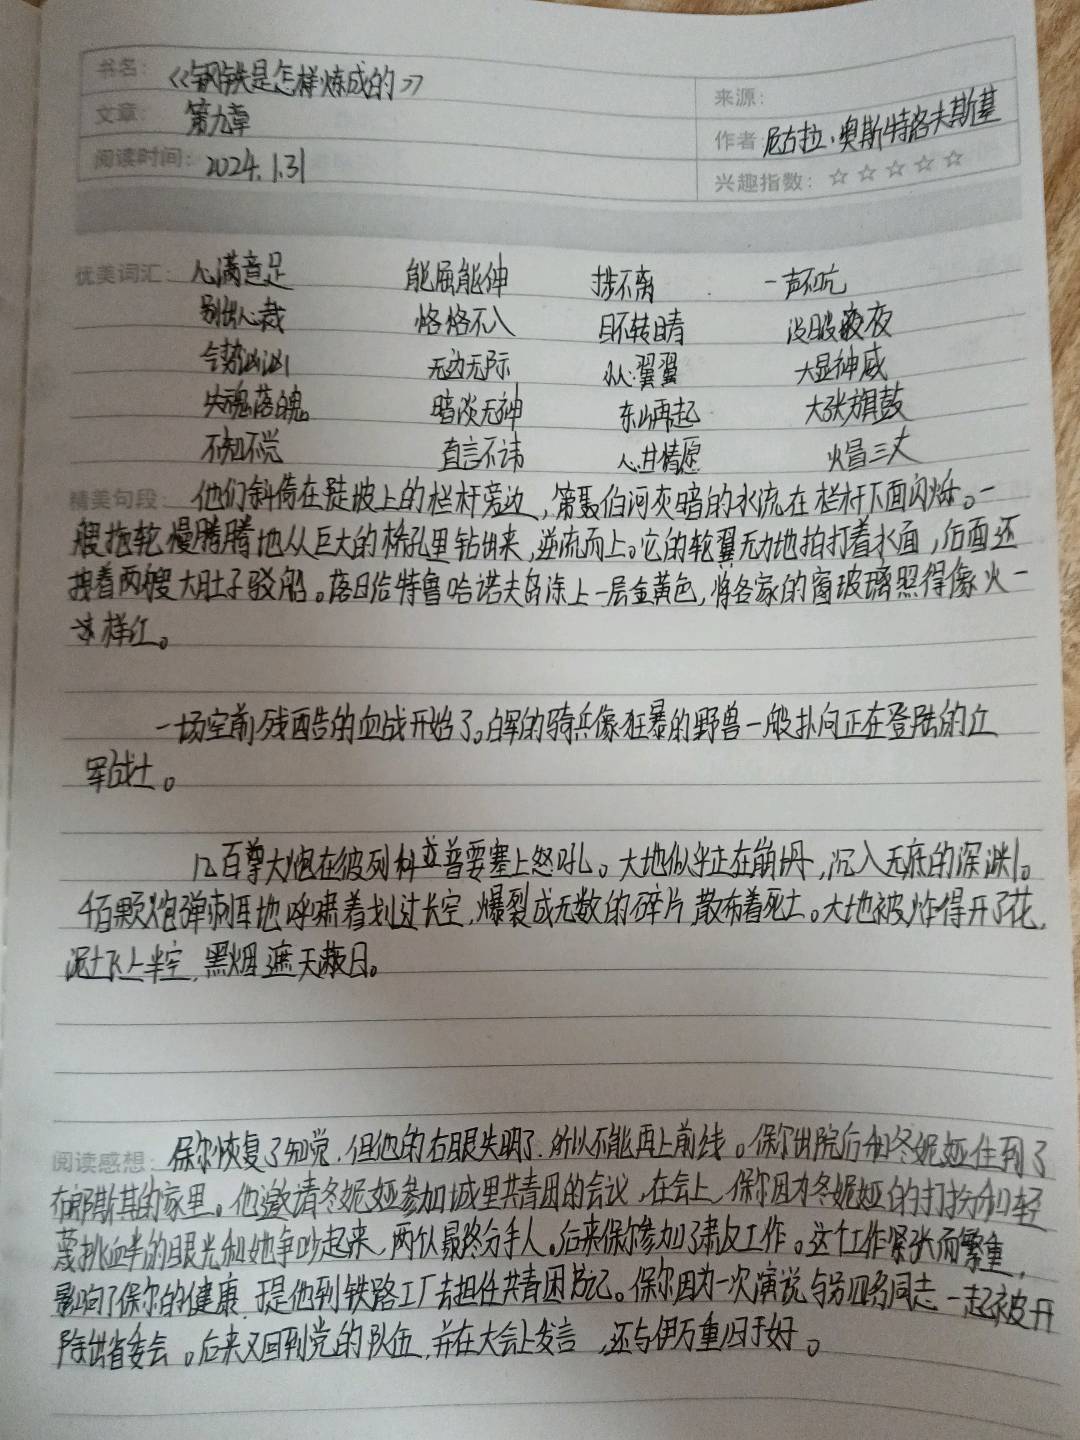 书名： 《钢铁是怎样炼成的》
来源：
文章： 第九章
作者 尼古拉·奥斯特洛夫斯基
阅读时间： 2024.1.31
兴趣指数：☆☆☆☆☆
优美词汇： 心满意足 能屈能伸 一声不吭
别出心裁 格格不入 目不转睛 没日没夜
气势汹汹 无边无际 小心翼翼 大显神威
失魂落魄 暗淡无神 东山再起 大张旗鼓
不知不觉 直言不讳 心甘情愿 火冒三丈
精美句段： 他们斜倚在陡坡上的栏杆旁边，第聂伯河灰暗的水流在栏杆下面闪烁。一
艘拖轮慢腾腾地从巨大的桥孔里钻出来，逆流而上。它的轮翼无力地拍打着水面，后面还
拽着两艘大肚子驳船。落日给特鲁哈诺夫岛涂上一层金黄色，将各家的窗玻璃照得像火一
样红。
一场空前残酷的血战开始了。白军的骑兵像狂暴的野兽一般扑向正在登陆的红
军战士。
几百尊大炮在彼列科普要塞上怒吼。大地似乎正在崩坍，沉入无底的深渊。
千百颗炮弹刺耳地呼啸着划过长空，爆裂成无数的碎片，散布着死亡。大地被炸得开了花，
泥土飞上半空，黑烟遮天蔽日。
阅读感想： 保尔恢复了知觉，但他的右眼失明了，所以不能再上前线。保尔出院后和冬妮娅住到了
布郎斯基的家里。他邀请冬妮娅参加城里共青团的会议，在会上，保尔因为冬妮娅的打扮和轻
蔑挑衅的眼光和她争吵起来，两人最终分手。后来保尔参加了肃反工作。这个工作紧张而繁重，
影响了保尔的健康，于是他到铁路工厂去担任共青团书记。保尔因为一次演说与另四名同志一起被开
除出省委会。后来又回到党的队伍，并在大会上发言，还与伊万重归于好。